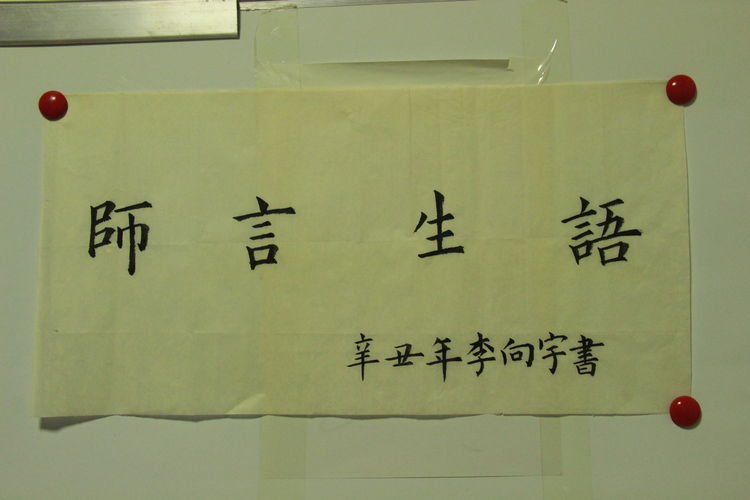 師言生語
辛丑年李向宇書